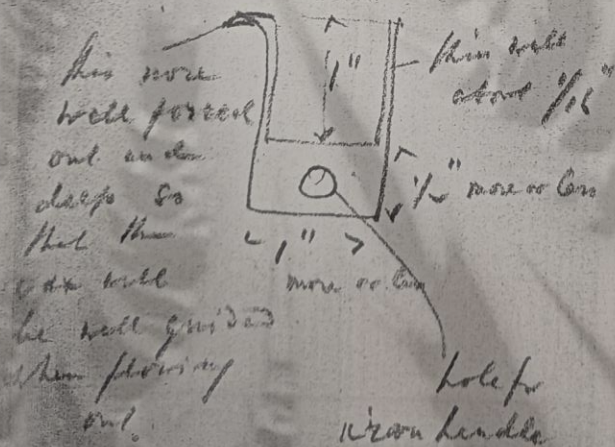 this nose
well forced
out and
deep so
that the
wax will
be well guided
when flowing
out.
1"
thin wall
about 1/16"
1/2" more or less
1"
more or less
hole for
wooden handle